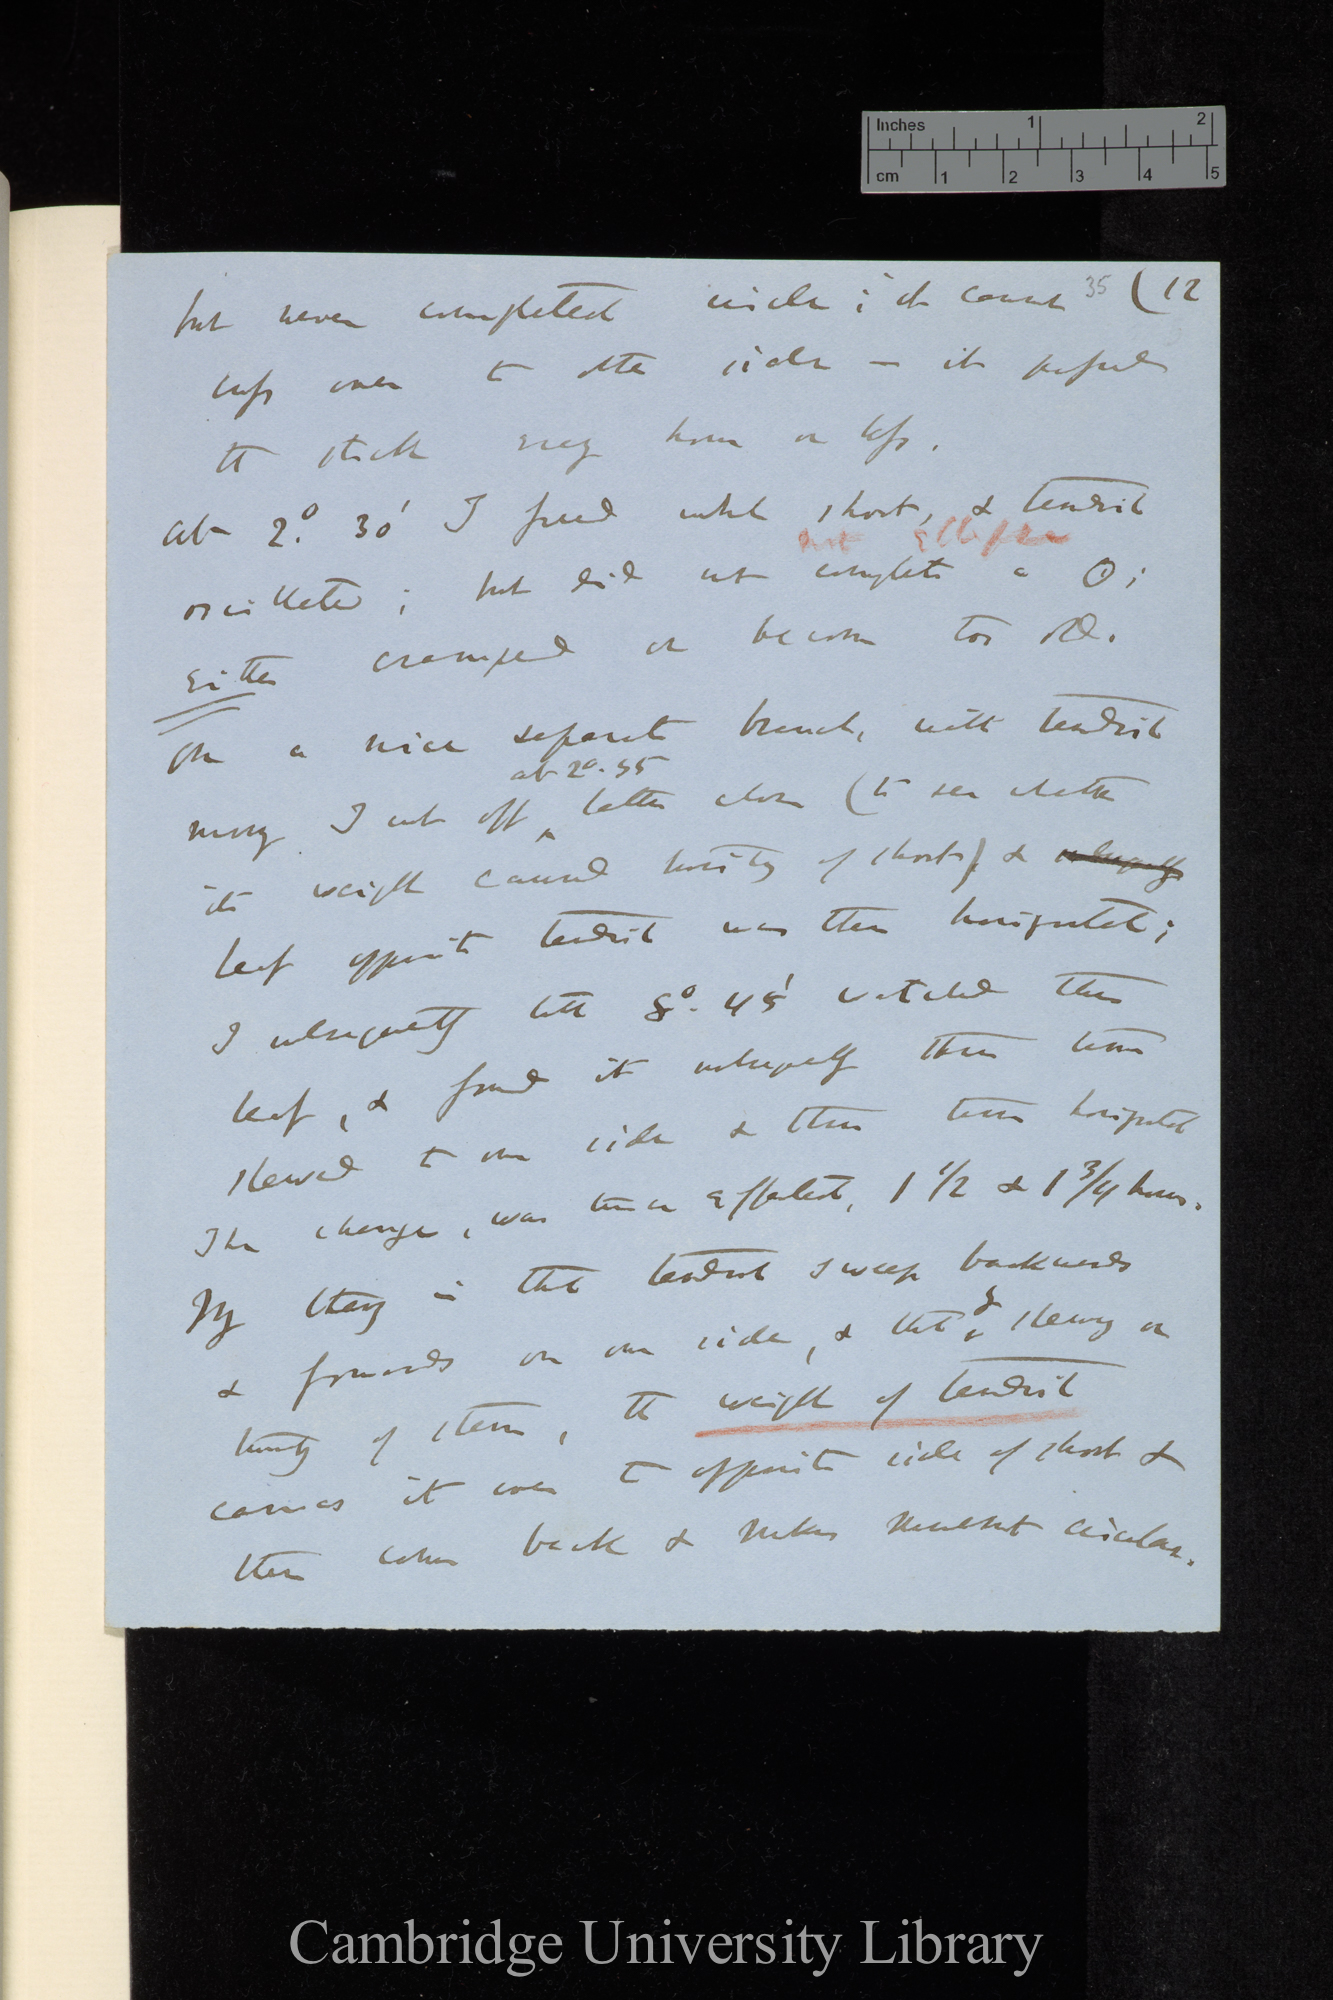 Inches 1 2
cm 1 2 3 4 5
35 (12
but never completed circle; it cannot
over to other side — it passed
the stick every hour or less.
At 2°. 30' I freed whole shoot, & tendril
not ellipse
oscillated; but did not complete a ⊙;
either cramped or become too old.
On a nice separate branch, with tendril
at 2°. 55
moving I cut off ^ latter alone (to see whether
its weight caused twisting of shoots) & subsequently
leaf opposite tendril was then horizontal;
I subsequently till 8°. 45' watched this
leaf, & found it subsequently three times
slewed to one side & three times horizontal
The change, was twice effected, 1 1/2 & 1 3/4 hours.
My theory is that tendril sweeps backwards
& forwards on one side, & that by slewing or
twisting of stem, the weight of tendril
carries it over to opposite side of shoot &
then comes back & makes movement circular.
Cambridge University Library